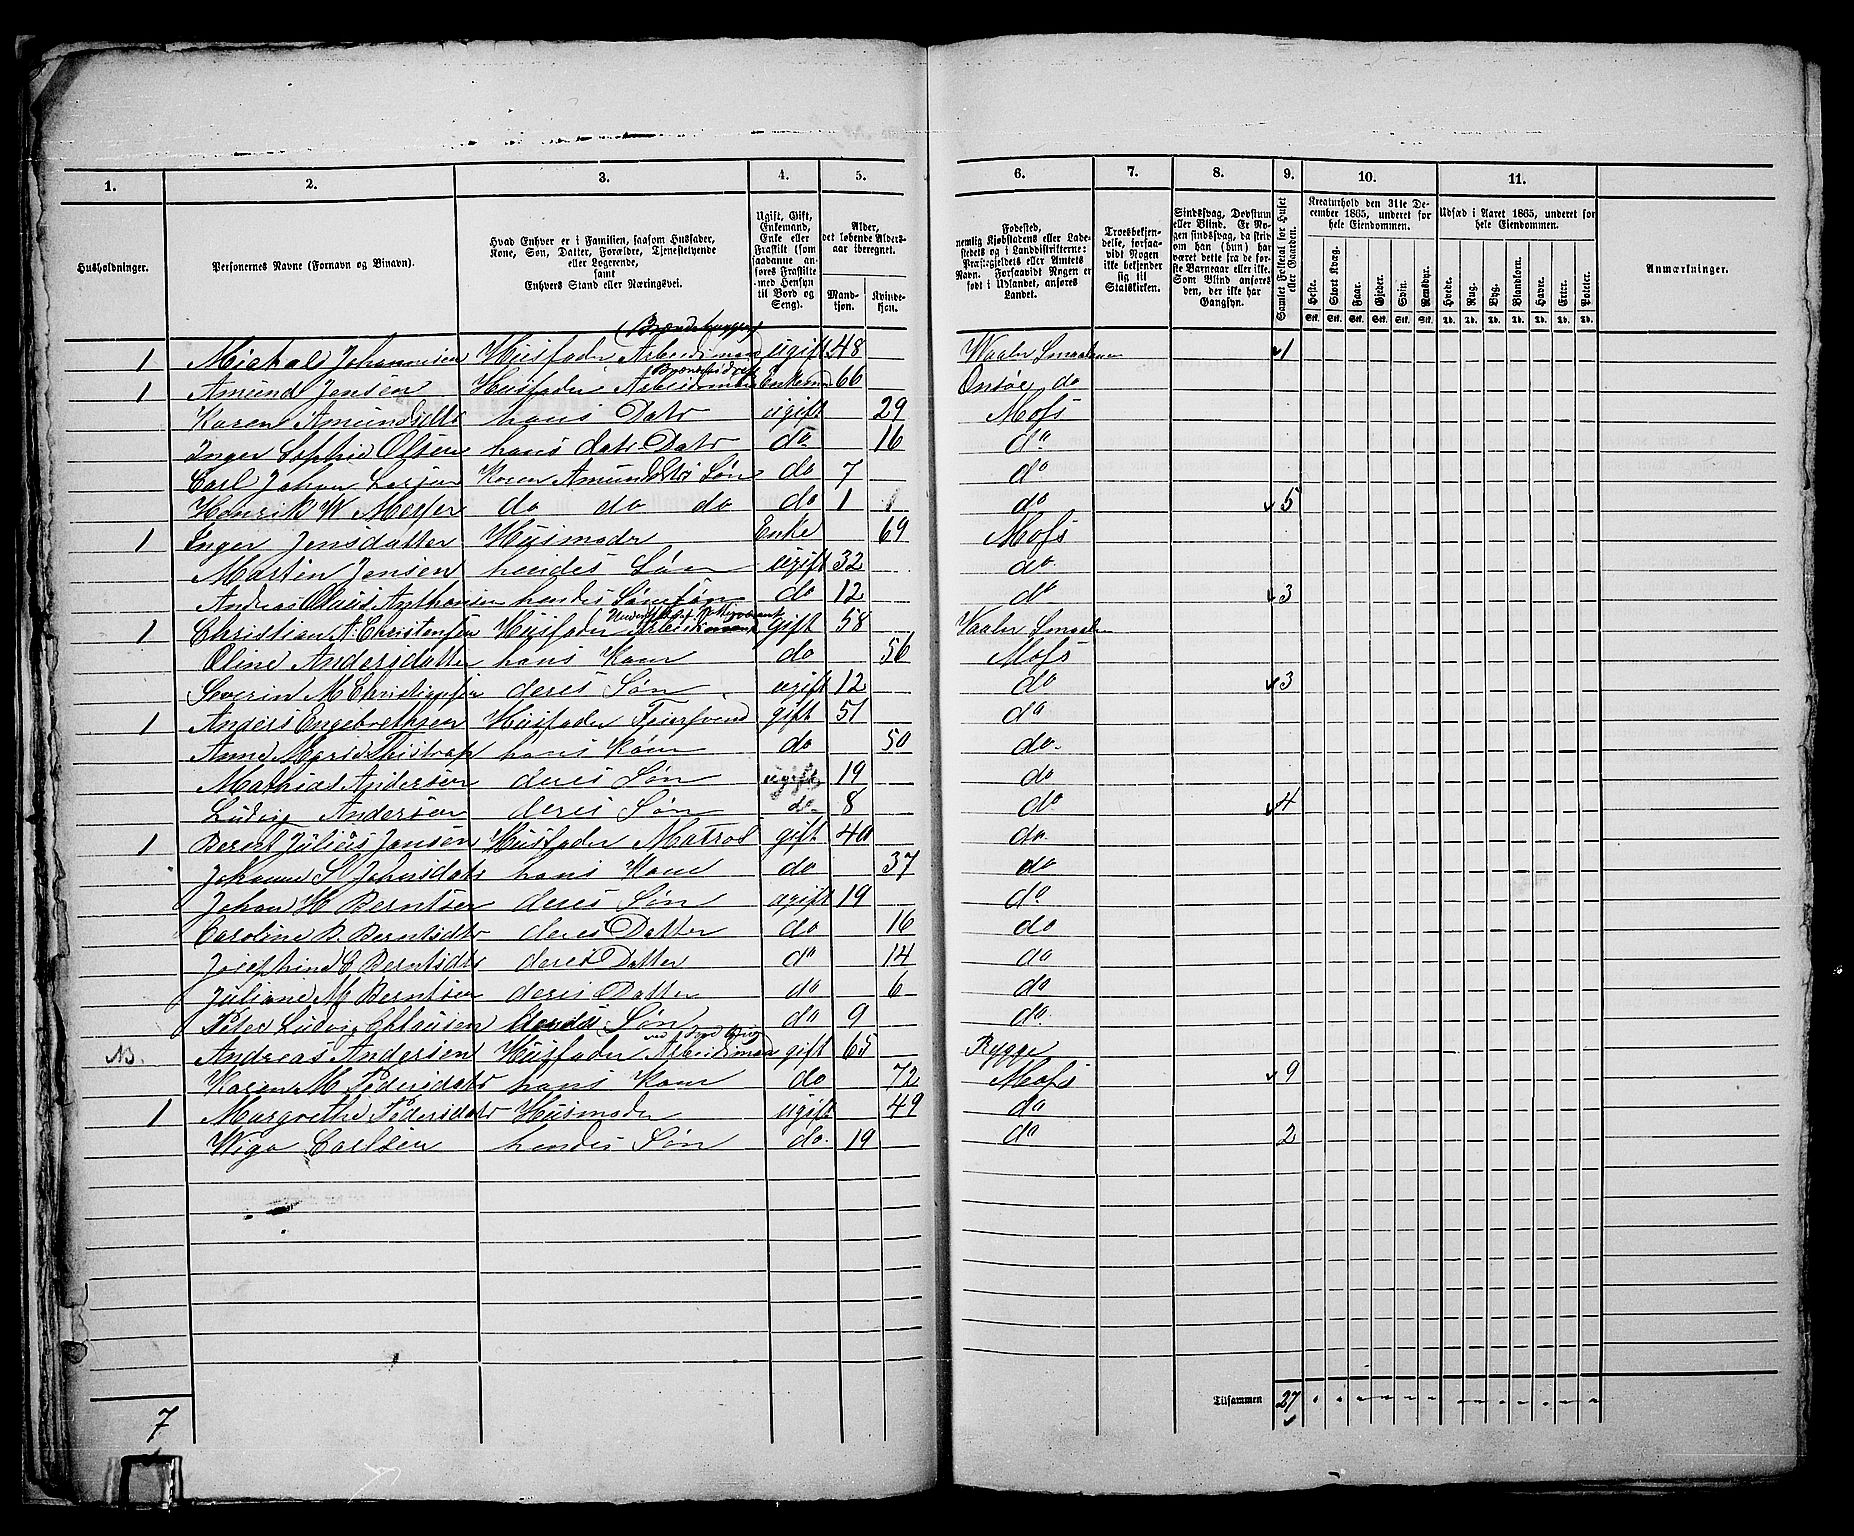 1. 2. 3. 4. 5. 6. 7. 8. 9. 10. 11.
Husholdninger.
Personernes Navne (Fornavn og Binavn).
Hvad Enhver er i Familien, saasom Husfader, Kone, Søn, Datter, Forældre, Tjenestetyende eller Logerende, samt Enhvers Stand eller Næringsvei.
Ugift, Gift, Enkemand, Enke eller Fraskilt (som saadanne anføres Fraskilte med Hensyn til Bord og Seng).
Alder, det løbende Aldersaar iberegnet.
Mandkjøn. Kvindekjøn.
Fødested, nemlig Kjøbstadens eller Ladestedets og i Landdistrikterne: Præstegjeldets eller Amtets Navn. Forsaavidt Nogen er født i Udlandet, anføres Landet.
Troesbekjendelse, forsaavidt Nogen ikke bekjender sig til Statskirken.
Sindssvag, Døvstum eller Blind. Er Nogen sindssvag, da skrives om han (hun) har været dette fra de første Barneaar eller ikke. Som Blind anføres den, der ikke har Gangsyn.
Samlet Folketal for Huset eller Gaarden.
Kreaturhold den 31te December 1865, underet for hele Eiendommen.
Heste. Stort Kvæg. Faar. Gjeder. Svin. Rensdyr.
Stk. Stk. Stk. Stk. Stk. Stk.
Udsæd i Aaret 1865, underet for hele Eiendommen.
Hvede. Rug. Byg. Blandkorn. Havre. Erter. Poteter.
Td. Td. Td. Td. Td. Td. Td.
Anmærkninger.
1 Michal Johannesen Husfader Arbeidsmand ugift 48 Waaler Smaalenene 1
1 Amund Jensen Husfader Arbeidsmand Enkemd 66 Onsøe do
Karen Amundsdtr hans Datr ugift 29 Moss
Inger Sophie Olsen hans datr Datr do 16 do
Carl Johan Larsen Karen Amundsdtr Søn do 7 do
Henrik W Meyer do do do do 1 do 5
1 Inger Jensdatter Husmoder Enke 69 Moss
Martin Jensen hendes Søn ugift 32 do
Andreas Olaus Anthonsen hendes Sønnesøn do 12 do 3
1 Christian A. Christensen Husfader gift 58 Vaaler Smaalen
Oline Andersdatter hans Kone do 56 Moss
Severin M Christiansen deres Søn ugift 12 do 3
1 Anders Engebrethsen Husfader Feiersvend gift 51 do
Anne Marie hans Kone do 50 do
Mathias Andersen deres Søn ugift 19 do
Ludvig Andersen deres Søn do 8 do 4
1 Berent Julius Jansen Husfader Matros gift 40 do
Johanne S Johnsdatr hans Kone do 37 do
Johan H Berntsen deres Søn ugift 19 do
Caroline B. Berntsdtr deres Datter do 16 do
Josephine C Berntsdtr deres Datter do 14 do
Juliane M Berntsen deres Datter do 6 do
Peter Ludvig Clausen Søn do 9 do
NB. Andreas Andersen Husfader Arbeidsmand gift 65 Rygge
Karen M Pedersdatr hans Kone do 72 Moss 9
1 Margrethe Pedersdatr Husmoder ugift 49 do
Wigo Carlsen hendes Søn do 19 do 2
7 Tilsammen 27